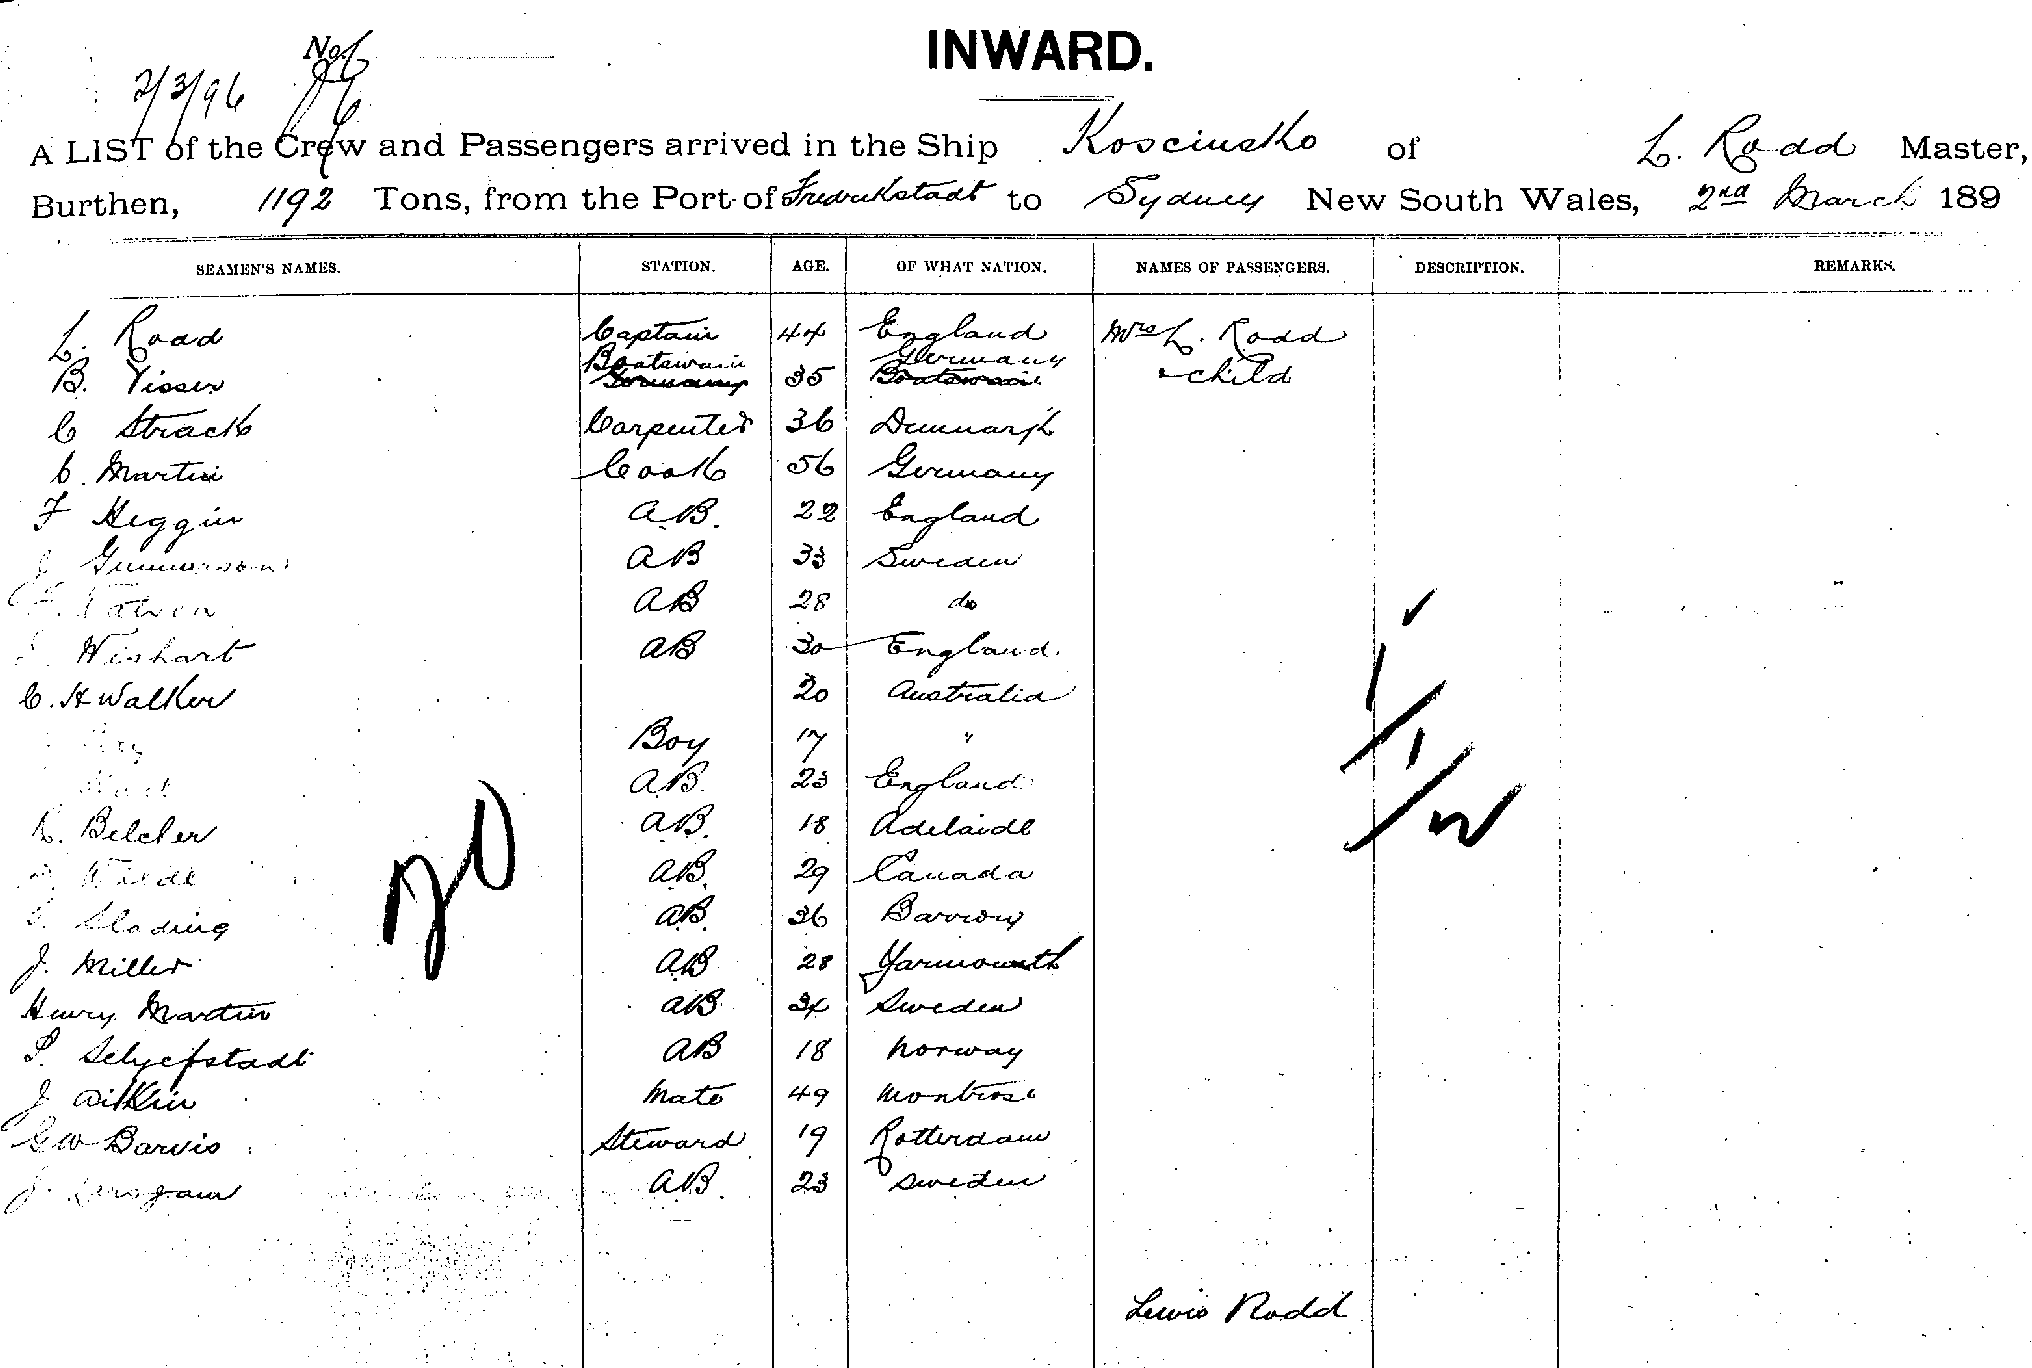 INWARD.
2/3/96
A LIST of the Crew and Passengers arrived in the Ship Kosciusko of L. Rodd Master,
Burthen, 1192 Tons, from the Port of Fredrikstadt to Sydney New South Wales, 2nd March 189
SEAMEN'S NAMES. STATION. AGE. OF WHAT NATION. NAMES OF PASSENGERS. DESCRIPTION. REMARKS.
L. Rodd Captain 44 England Mrs L. Rodd
B. Visser Boatswain Germany 35 Germany Boatswain child
C Strack Carpenter 36 Denmark
C. Martin Cook 56 Germany
F Heggin A.B. 22 England
J Gunnarson AB 33 Sweden
AB 28 do
Wishart AB 30 England
C. H Walker 20 Australia
Boy 17 "
A.B. 23 England
R. Belcher A.B. 18 Adelaide
Wilde A.B. 29 Canada
Slading A.B. 36 Barrow
J. Miller AB 28 Yarmouth
Henry Martin AB 34 Sweden
AB 18 Norway
J Aitkin Mate 49 Montrose
G W Barvis Steward 19 Rotterdam
J. A.B. 23 Sweden
20
1/1/2
Lewis Rodd